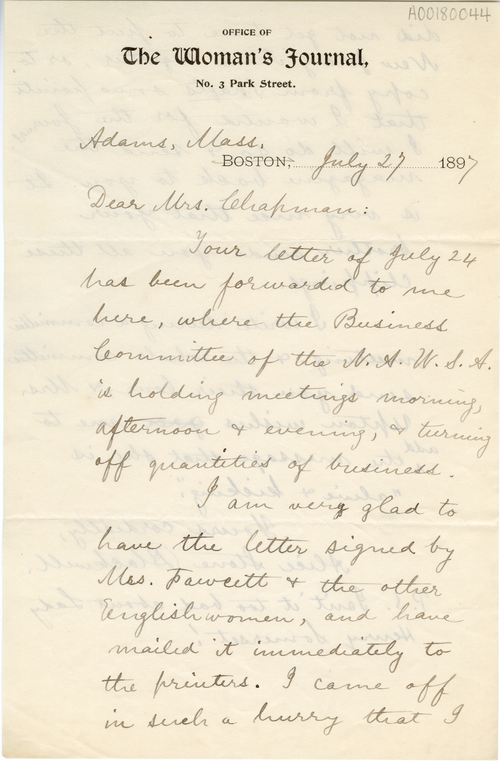 A00180044
OFFICE OF
The Woman's Journal,
No. 3 Park Street.
Adams, Mass.
BOSTON, July 27 1897
Dear Mrs. Chapman:
Your letter of July 24
has been forwarded to me
here, where the Business
Committee of the N. A. W. S. A.
is holding meetings morning,
afternoon & evening, & turning
off quantities of business.
I am very glad to
have the letter signed by
Mrs. Fawcett & the other
Englishwomen, and have
mailed it immediately to
the printers. I came off
in such a hurry that I